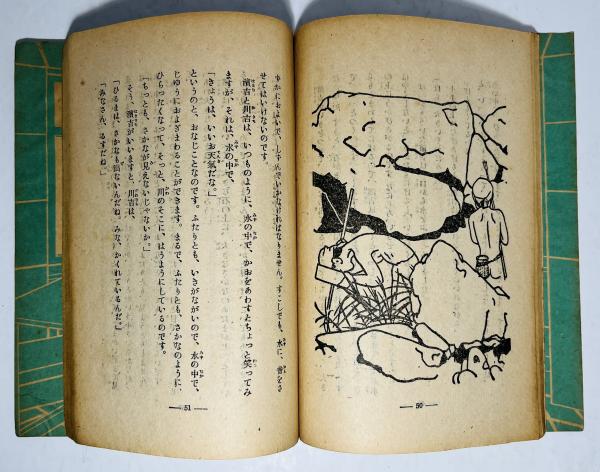 せてはいけないのです。
濱吉と川吉は、いつものように、水の中で、かおをあわすとちょっと笑ってみ
ますが、それは、水の中で、
「きょうは、いいお天氣だな。」
というのと、おなじことなのです。ふたりとも、いきがながいので、水の中で、
じゆうにおよぎまわることができます。まるで、ふたりとも、さかなのように、
ひらったくなって、そっと、川のそこに、はうようにしているのです。
「ちっとも、さかなが見えないじゃないか。」
そう、濱吉がいいますと、川吉は、
「ひるまは、さかなも出ないんだね。みな、かくれているんだ。」
「みなさん、るすだね。」
50
51